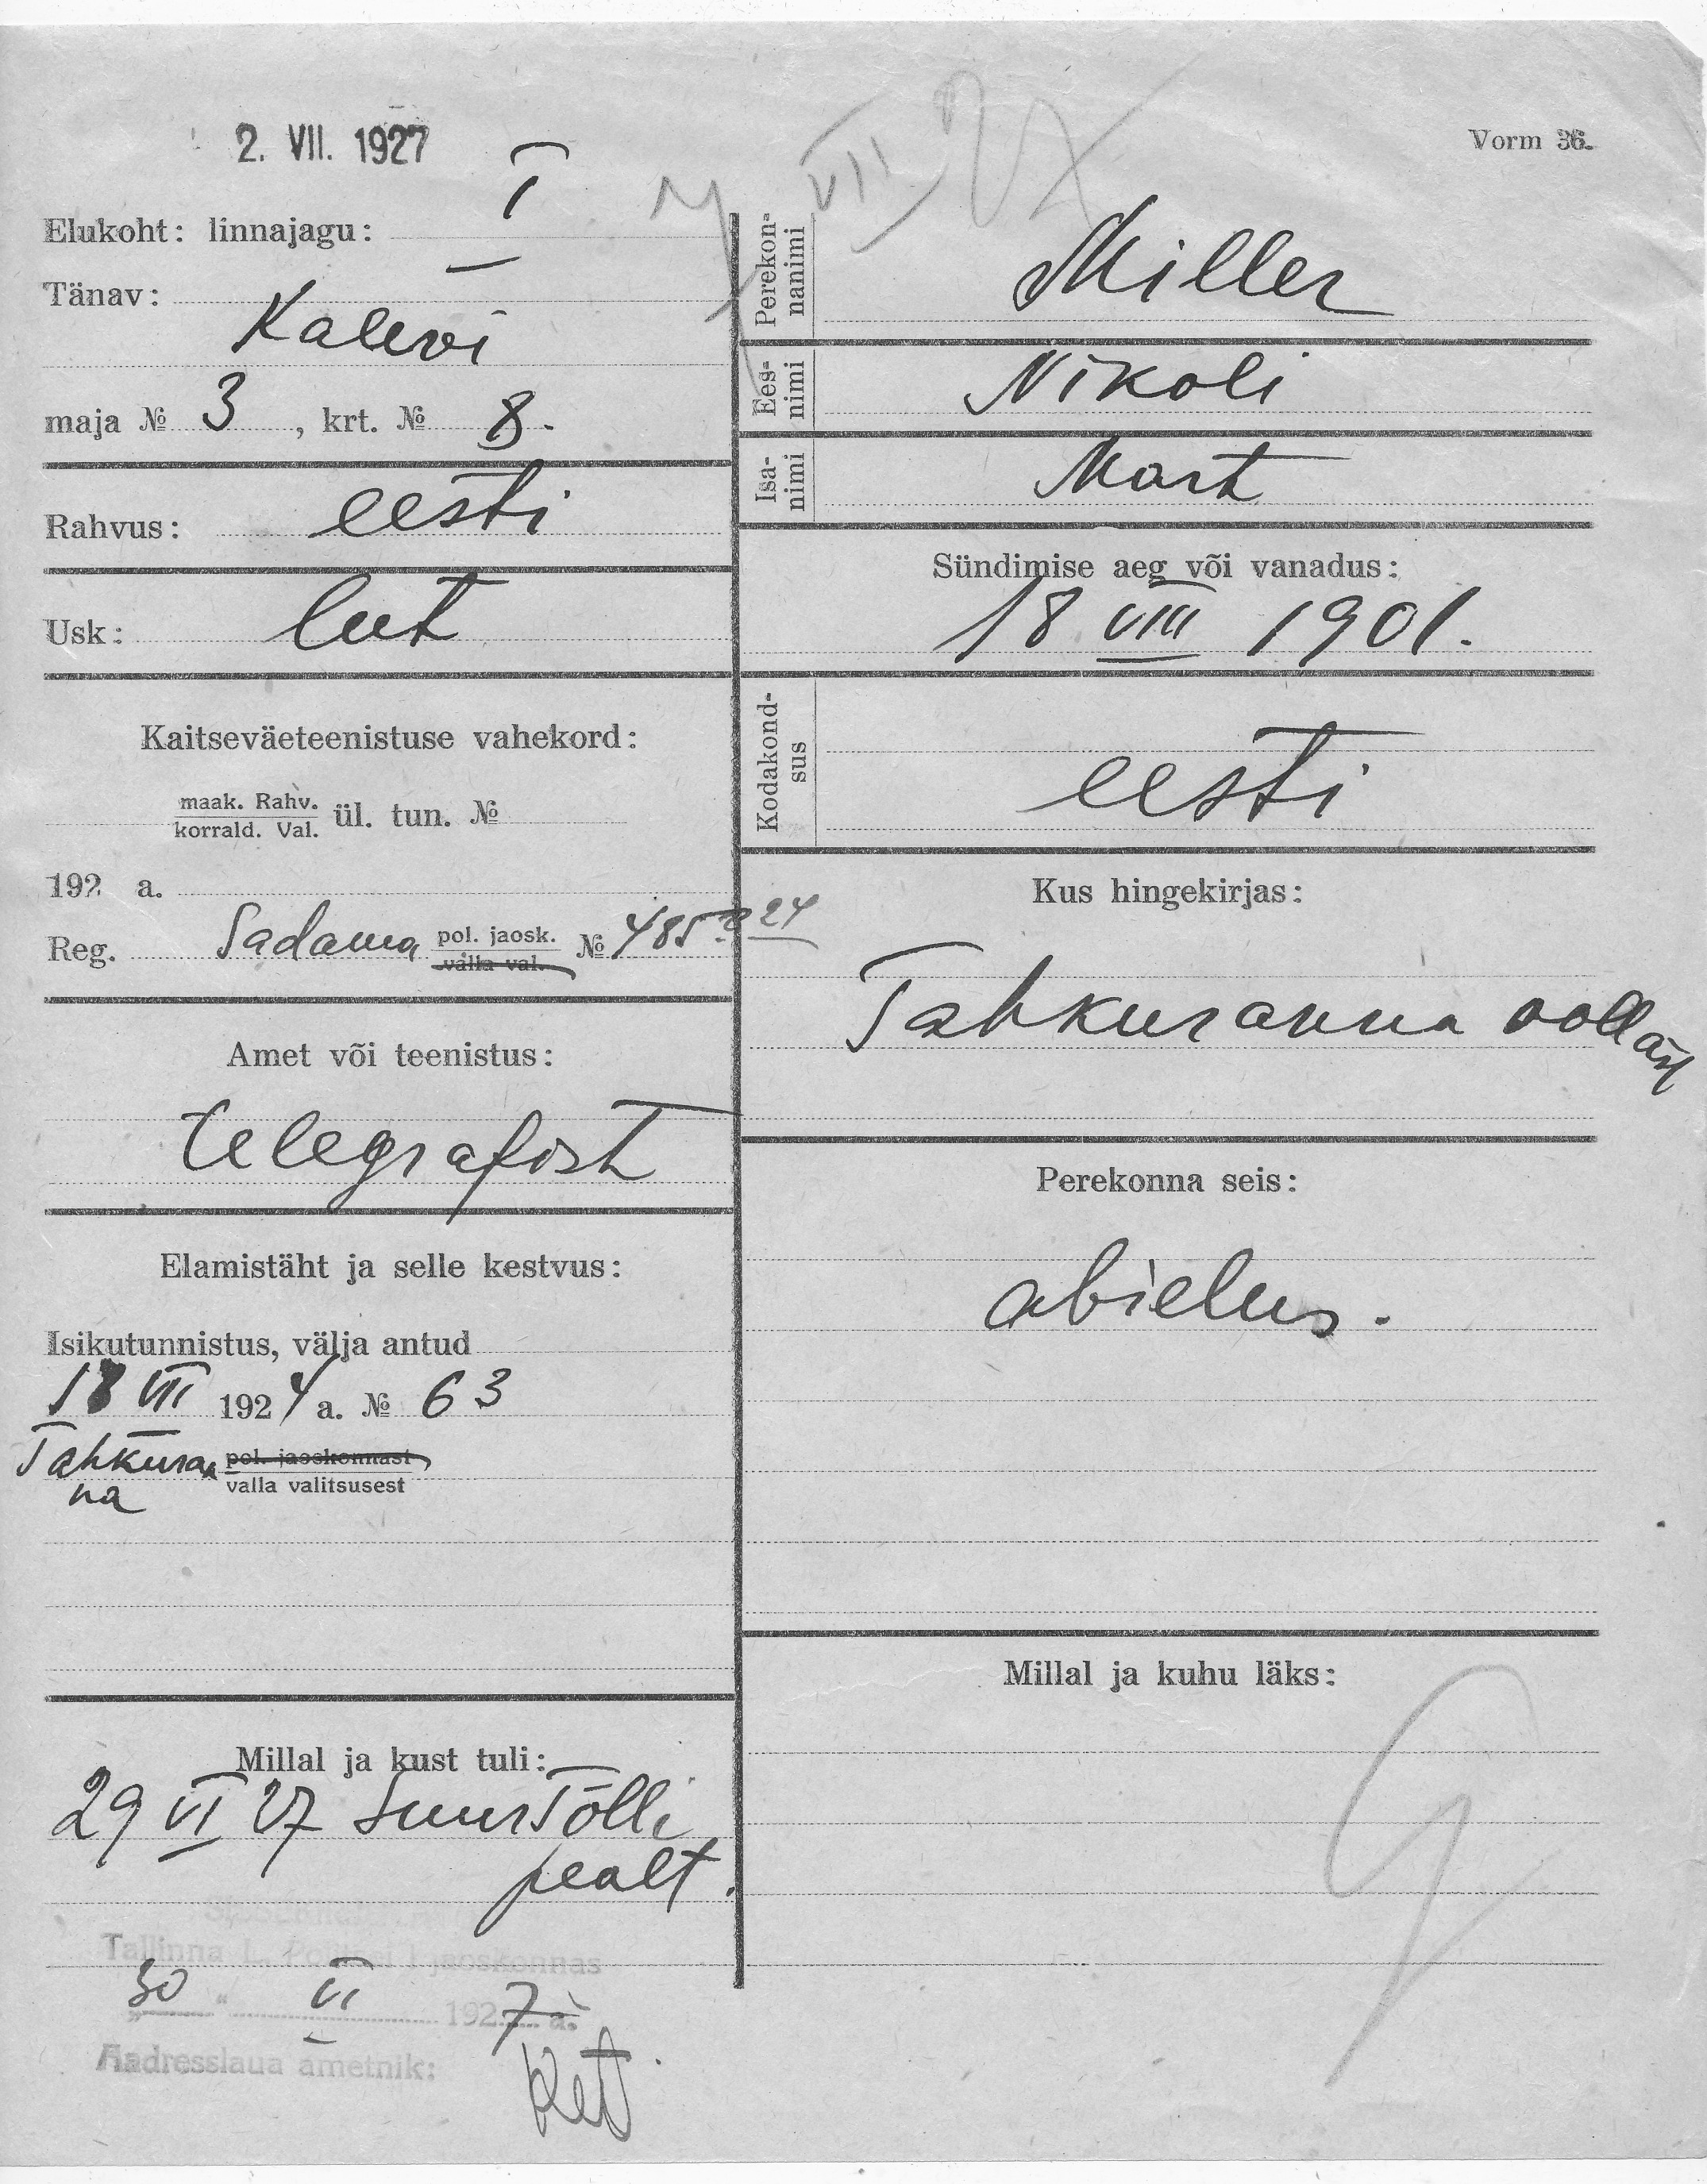 2. VII. 1927
VII 27
Vorm 36.
Elukoht: linnajagu: I
Tänav:
Kalevi
maja № 3, krt. № 8.
Rahvus: eesti
Usk: lut
Kaitseväeteenistuse vahekord:
maak. Rahv.
korrald. Val. ül. tun. №
192 a.
Reg. Sadama pol. jaosk. № 485 24
valla val.
Amet või teenistus:
telegrafist
Elamistäht ja selle kestvus:
Isikutunnistus, välja antud
18 VIII 1924 a. № 63
Tahkuran pol. jaoskonnast
na valla valitsusest
Millal ja kust tuli:
29 VI 27 Suur Tõlli
pealt.
Tallinna L. Politsei I jaoskonnas
„30“ VI 1927 a.
Aadresslaua ametnik:
Perekon-
nanimi
Miller
Ees-
nimi
Nikoli
Isa-
nimi
Mart
Sündimise aeg või vanadus:
18 VIII 1901.
Kodakond-
sus
eesti
Kus hingekirjas:
Tahkuranna vallas
Perekonna seis:
abielus.
Millal ja kuhu läks: